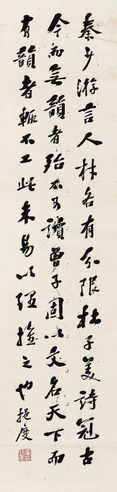 秦少游言人材各有分限杜子美詩冠古
今而無韻者殆不可讀曾子固以文名天下而
有韻者輒不工此未易以理推之也